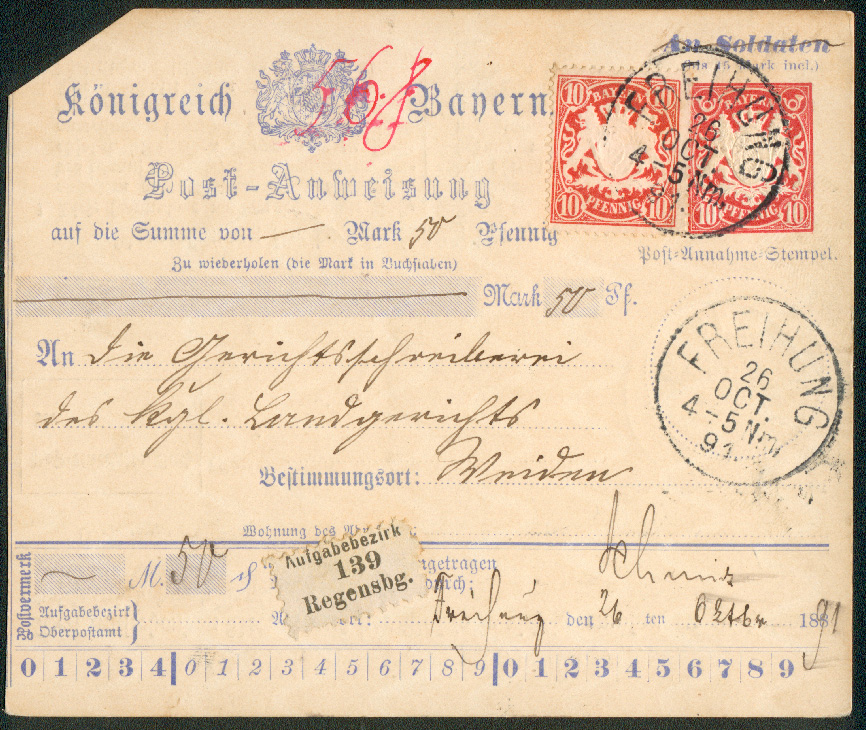 An Soldaten
(bis 15 Mark incl.)
Königreich Bayern.
568
10 BAYERN 10
10 PFENNIG 10
10 PFENNIG 10
FREIHUNG
26
OCT.
4-5 Nm.
91.
Post-Anweisung
auf die Summe von — Mark 50 Pfennig
Zu wiederholen (die Mark in Buchstaben)
Post-Annahme-Stempel.
Mark 50 Pf.
An die Gerichtsschreiberei
des kgl. Landgerichts
Bestimmungsort: Weiden
FREIHUNG
26
OCT.
4-5 Nm.
91.
Wohnung des
Postvermerk
M. 50 ₰
Aufgabebezirk
139
Regensbg.
getragen
durch:
Schmid
Aufgabebezirk
Oberpostamt
Freihung den 26 ten Oktbr 188 91
0 1 2 3 4 0 1 2 3 4 5 6 7 8 9 0 1 2 3 4 5 6 7 8 9